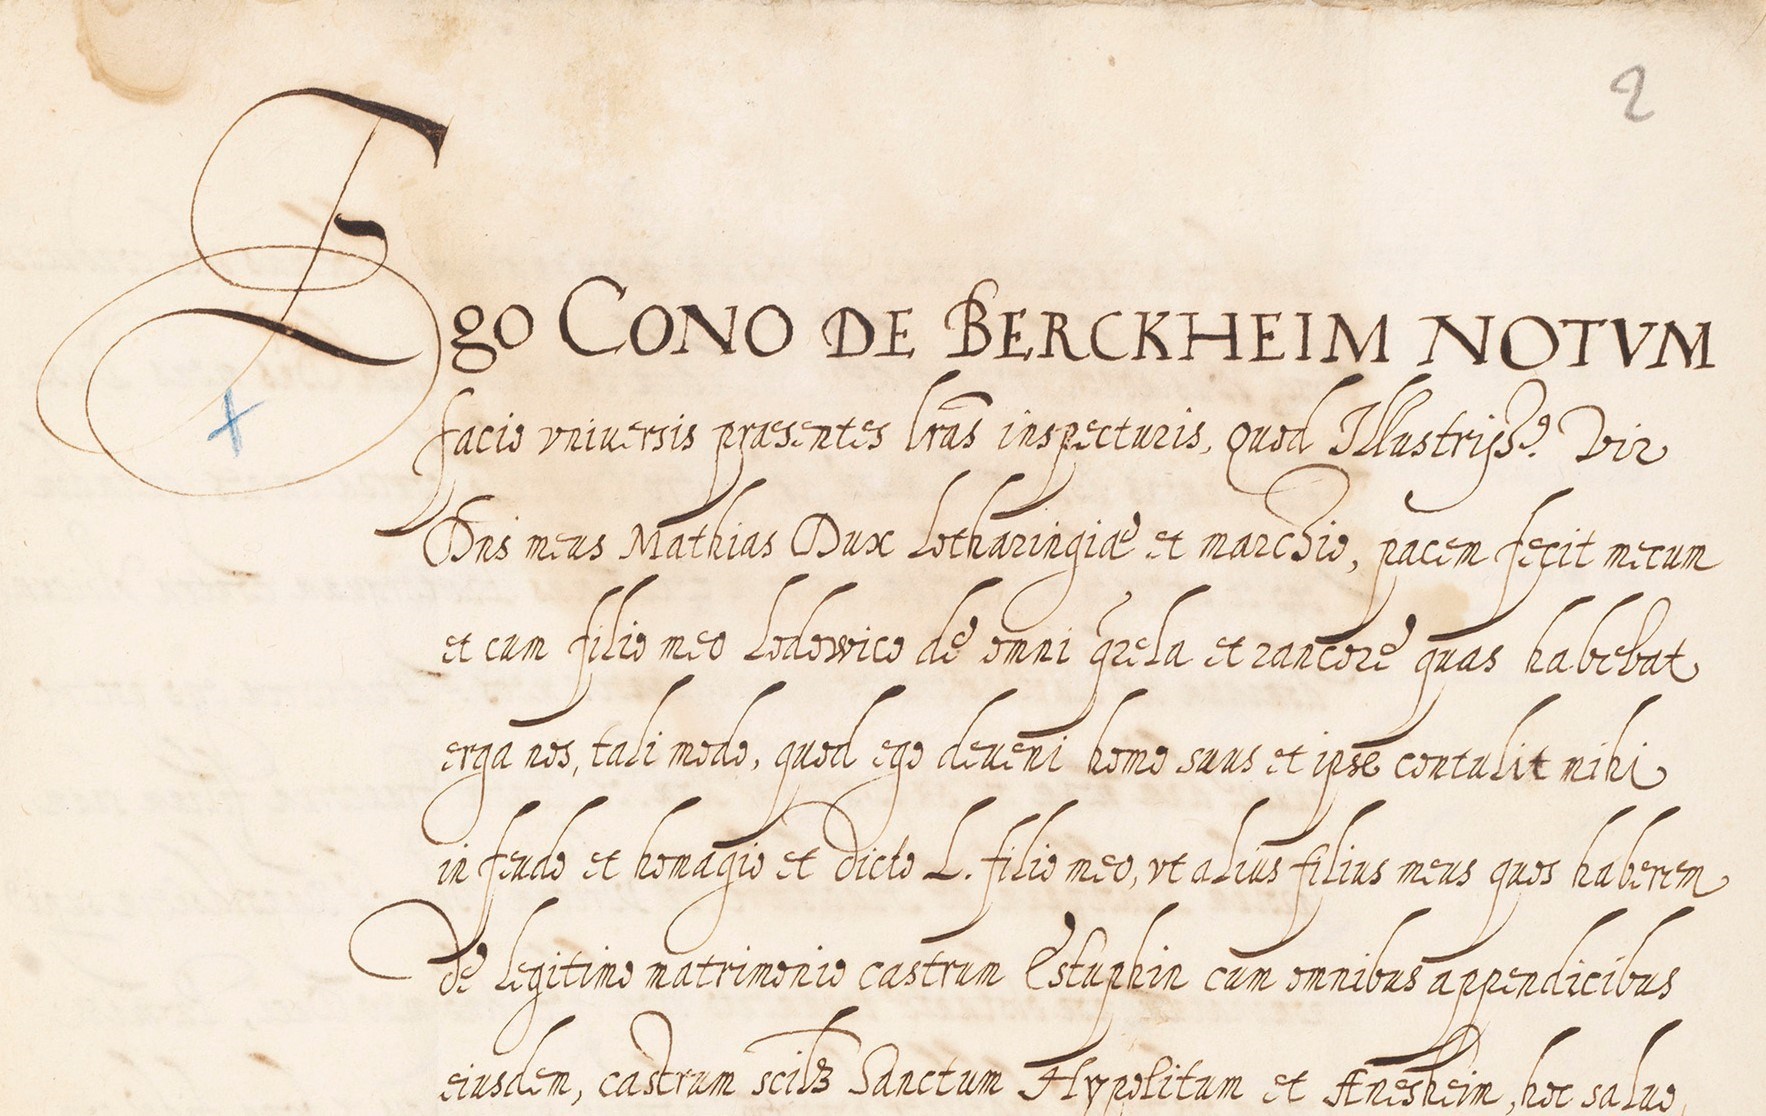 2
Ego CONO DE BERCKHEIM NOTVM
facio vniuersis praesentes lras inspecturis, quod Illustriss.e Vir
Dns meus Mathias Dux Lotharingiae et marchio, pacem fecit mecum
et cum filio meo Lodowico de omni qrela et rancore quas habebat
erga nos, tali modo, quod ego deueni homo suus et ipse contulit mihi
in feudo et homagio et dicto L. filio meo, vt alius filius meus quos haberem
de legitimo matrimonio castrum Estuphin cum omnibus appendicibus
eiusdem, castrum scilz Sanctum Hypolitum et Aneshein, hoc saluo,